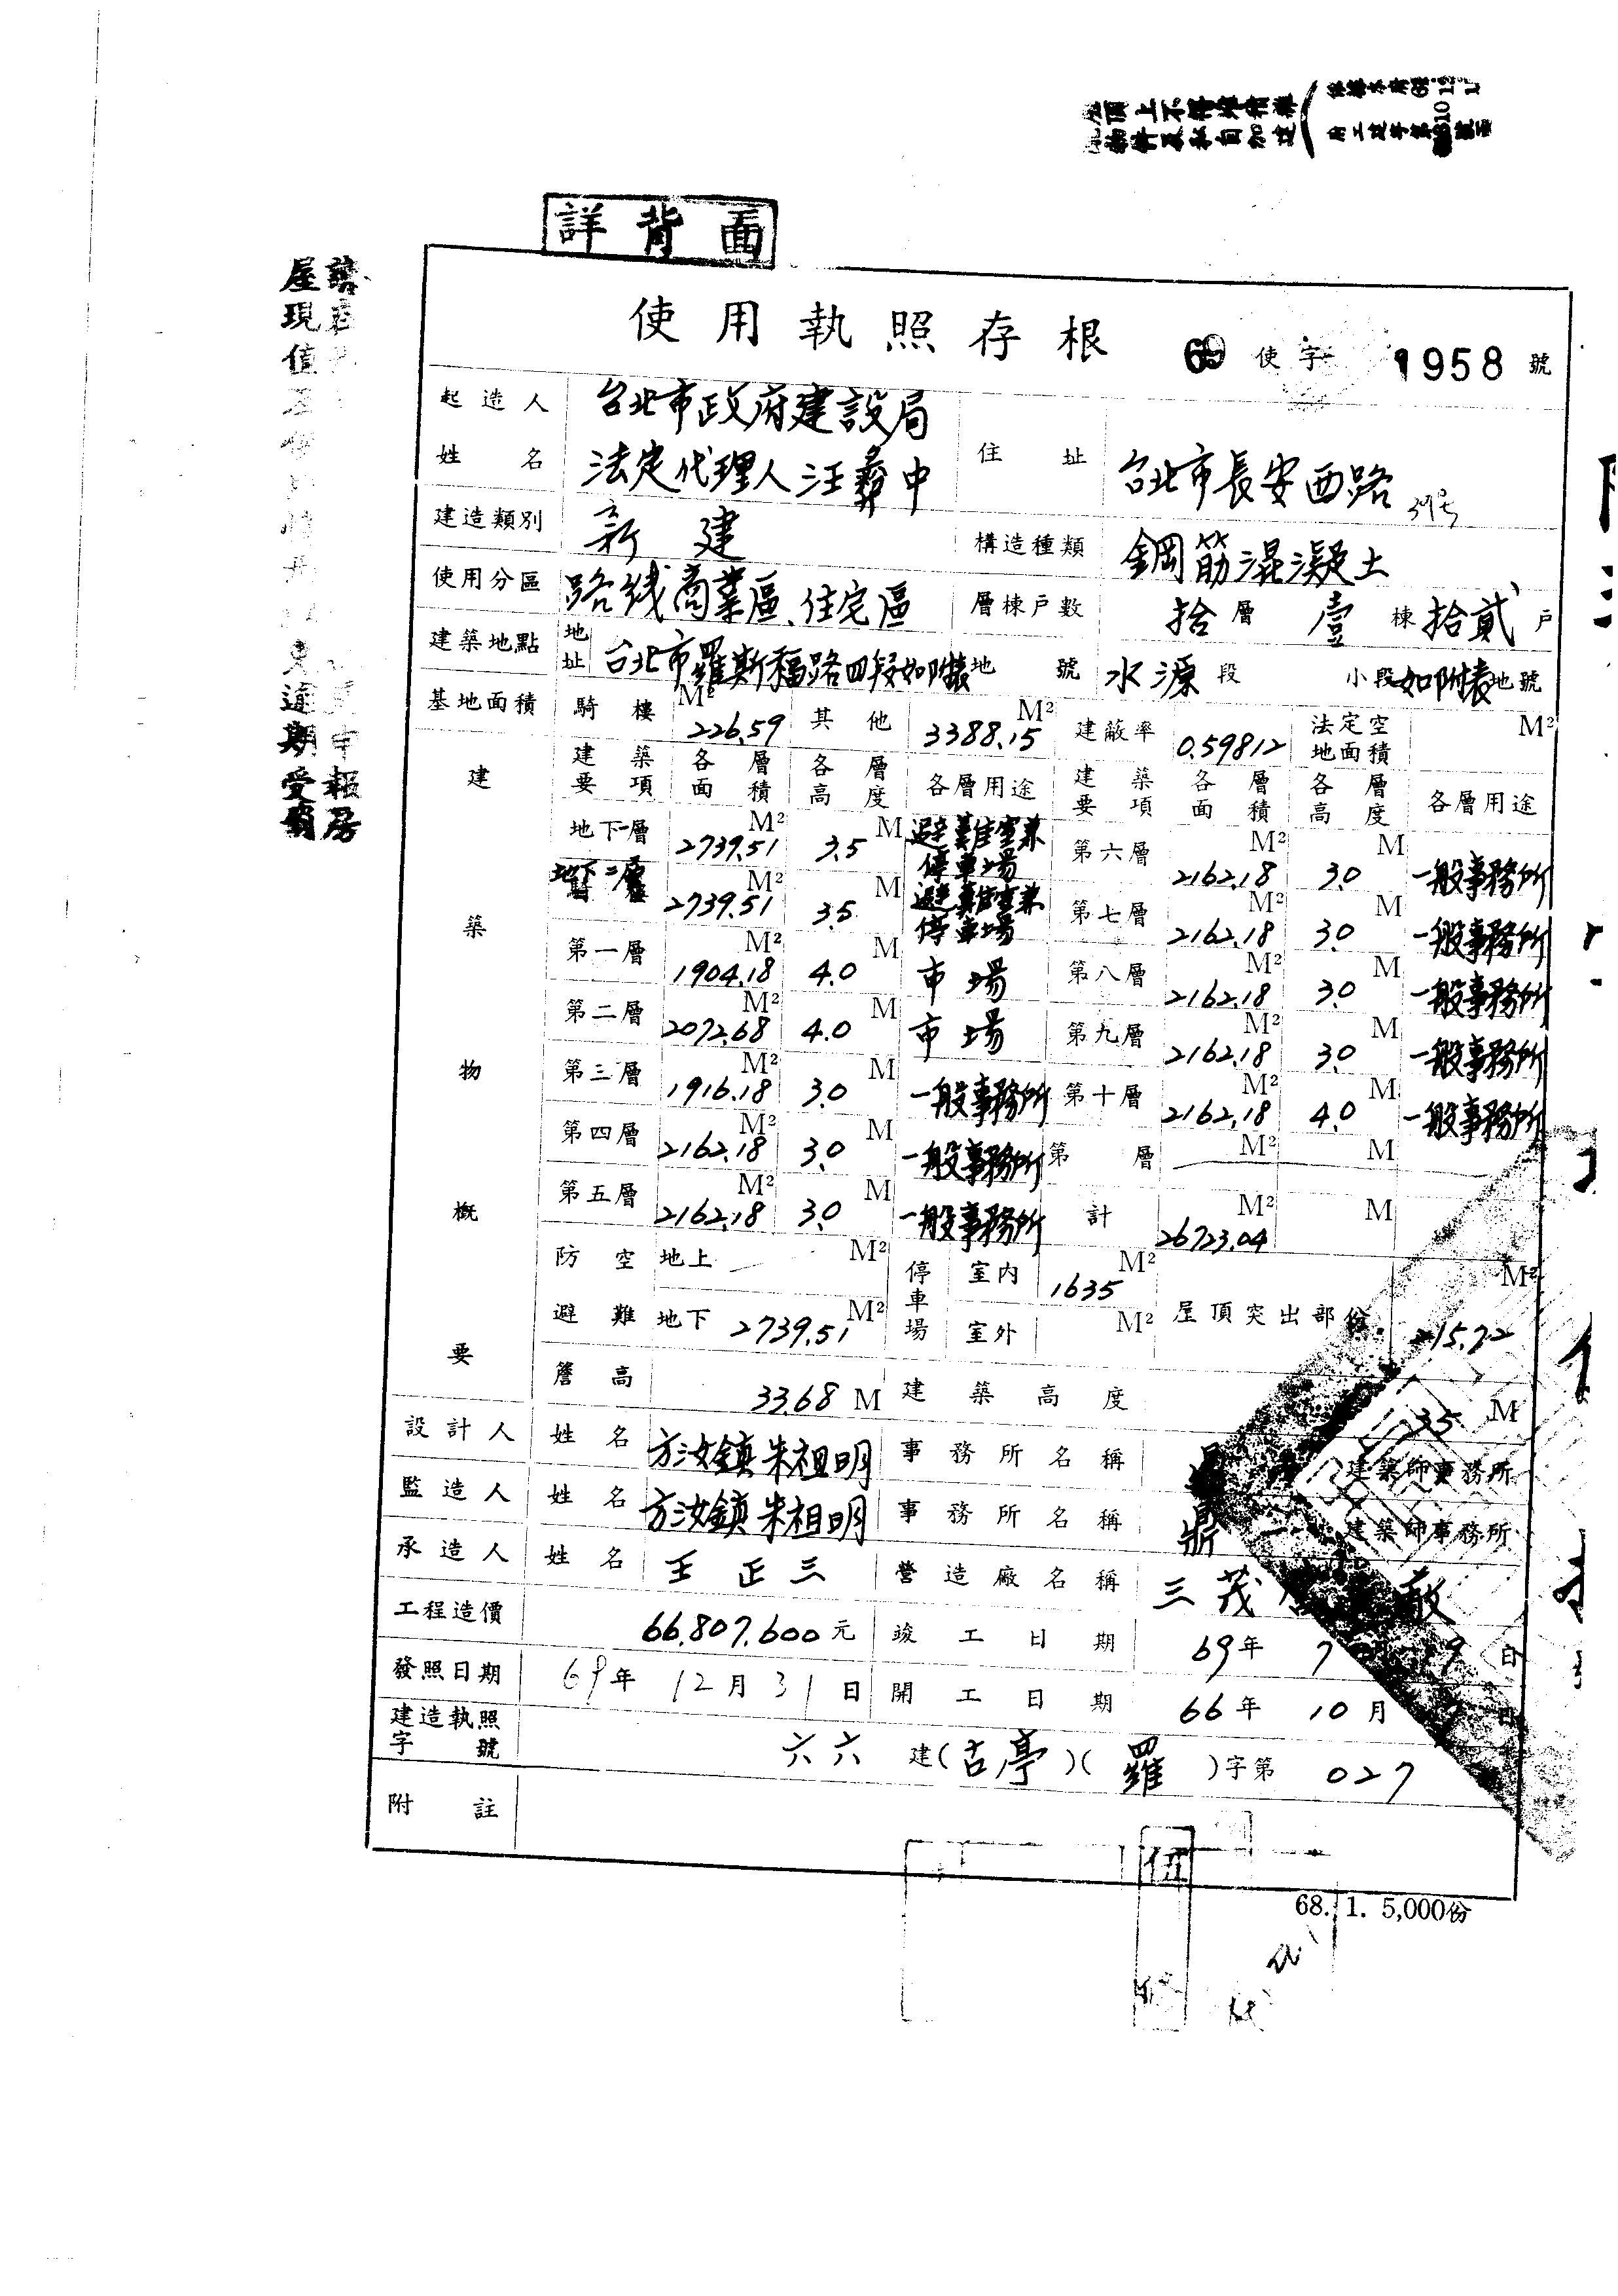 屋頂上不得堆積雜
物并及私自加建
詳背面
使用執照存根 69 使字 1958 號
起造人姓名 台北市政府建設局 法定代理人汪彝中 住址 台北市長安西路39号
建造類別 新建 構造種類 鋼筋混凝土
使用分區 路线商業區、住宅區 層棟戶數 拾層 壹棟 拾貳戶
建築地點 地址 台北市羅斯福路四段如附表 地號 水源段 小段如附表地號
基地面積 騎樓 M² 226.59 其他 M² 3388.15 建蔽率 0.59812 法定空地面積 M²
建築物概要
建築要項 各層面積 各層高度 各層用途 建築要項 各層面積 各層高度 各層用途
地下一層 M² 2739.51 M 3.5 避難室兼停車場 第六層 M² 2162.18 M 3.0 一般事務所
地下二層 M² 2739.51 M 3.5 避難室兼停車場 第七層 M² 2162.18 M 3.0 一般事務所
第一層 M² 1904.18 M 4.0 市場 第八層 M² 2162.18 M 3.0 一般事務所
第二層 M² 2072.68 M 4.0 市場 第九層 M² 2162.18 M 3.0 一般事務所
第三層 M² 1916.18 M 3.0 一般事務所 第十層 M² 2162.18 M 4.0 一般事務所
第四層 M² 2162.18 M 3.0 一般事務所 第 層 M² M
第五層 M² 2162.18 M 3.0 一般事務所 計 M² 26723.04 M
防空避難 地上 M² 停車場 室內 1635 M² 屋頂突出部份 M² 215.72
地下 2739.51 M² 室外 M²
簷高 33.68 M 建築高度 35 M
設計人 姓名 方汝鎮 朱祖明 事務所名稱 建築師事務所
監造人 姓名 方汝鎮 朱祖明 事務所名稱 鼎 建築師事務所
承造人 姓名 王正三 營造廠名稱 三茂
工程造價 66,807,600元 竣工日期 69年 7 日
發照日期 69年 12月 31日 開工日期 66年 10月 日
建造執照字號 六六 建(古亭)(羅)字第 027
附註
伍
68. 1. 5,000份
屋現值
逾期受罰
申報房